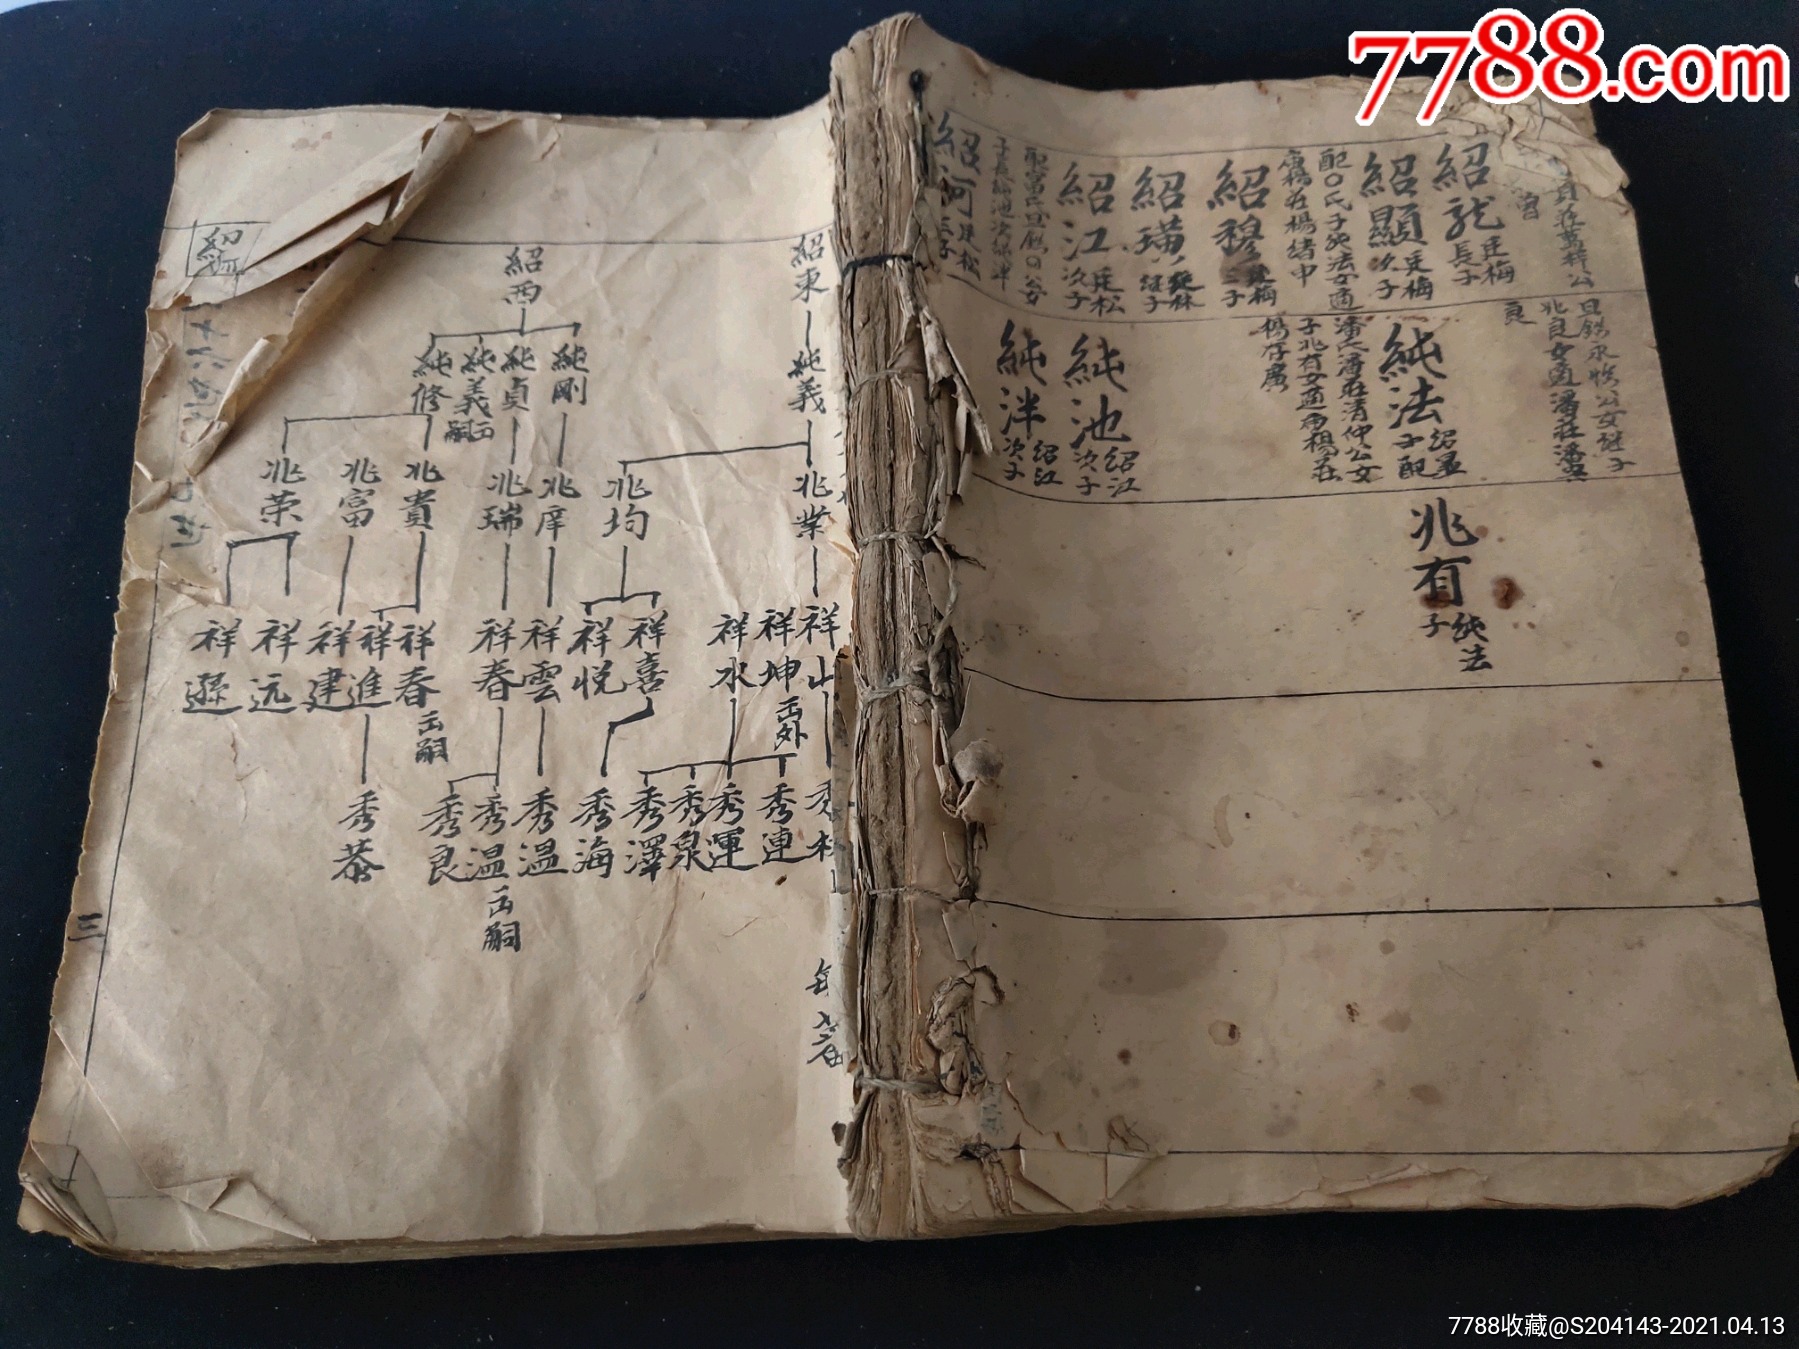 7788.com
紹龍 定梅長子
紹顯 定梅次子
配〇氏子純法女適
唐楊在楊緒中
紹穆
三子
紹璜
繼子
紹江 定松次子
紹河 定松
純法 紹顯子配
潘氏潘莊清仲公女
子兆有女適南楊莊
楊存廣
純池 紹江次子
純泮 紹江次子
兆有 純法子
紹東
純義
兆業
兆均
祥山
祥坤 出外
祥水
祥喜
祥悅
秀連
秀運
秀泉
秀澤
秀海
紹西
純剛
純貞
純義 出嗣
純修
兆庠
兆瑞
兆貴
兆富
兆荣
祥雲
祥春
祥春 出嗣
祥進
祥建
祥远
祥遜
秀温
秀温 出嗣
秀良
秀恭
三
7788收藏@S204143-2021.04.13